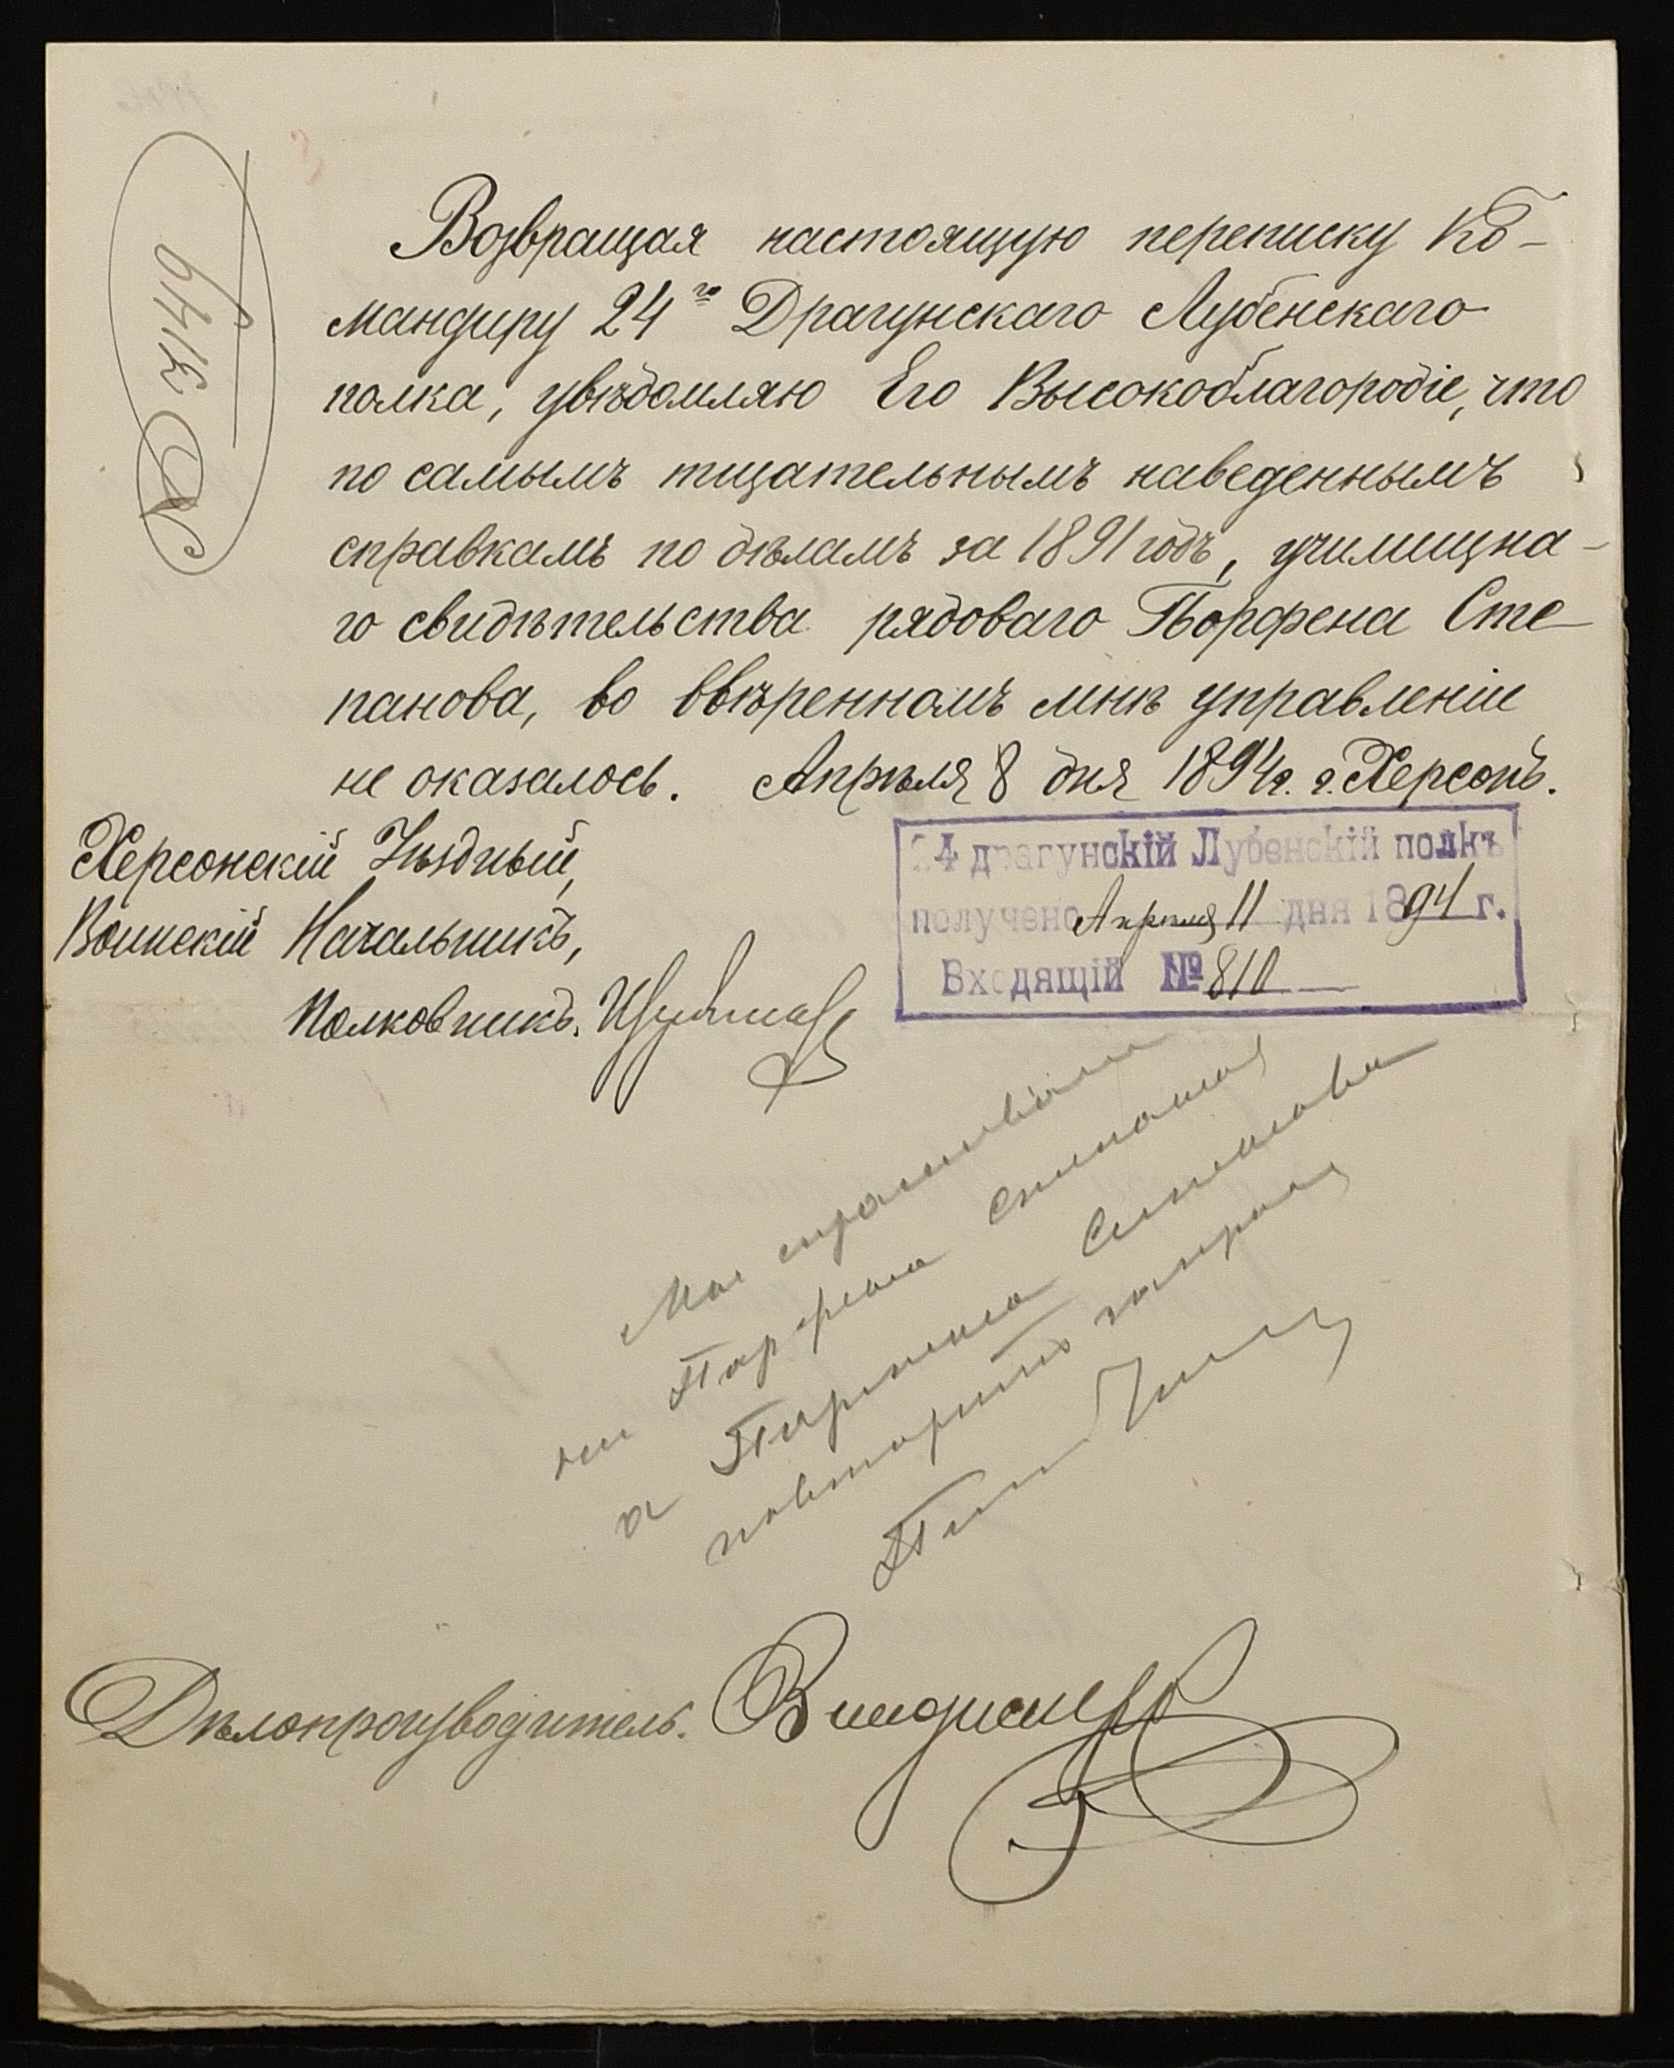 № 3149
Возвращая настоящую переписку Ко-
мандиру 24го Драгунскаго Лубенскаго
полка, увѣдомляю Его Высокоблагородіе, что
по самымъ тщательнымъ наведеннымъ
справкамъ по дѣламъ за 1891 годъ, училищна-
го свидѣтельства рядоваго Порфена Сте-
панова, во ввѣренномъ мнѣ управленіи
не оказалось. Апрѣля 8 дня 1894г. г. Херсонъ.
Херсонскій Уѣздный
Воинскій Начальникъ,
Полковникъ
24 драгунскій Лубенскій полкъ
получено Апрѣля 11 дня 1894 г.
Входящій № 810
Мы спрашивали
не Парфена Степанова
а Пармена Степанова
повторить запрос
Дѣлопроизводитель.